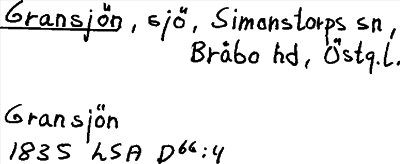 Gransjön, sjö, Simonstorps sn,
Bråbo hd, Östg.l.
Gransjön
1835 LSA D66:4